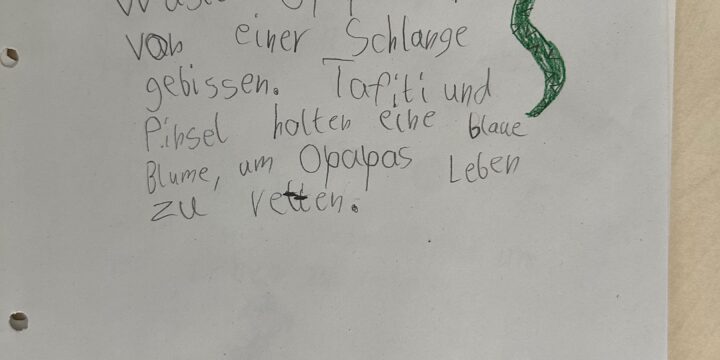 von einer Schlange
gebissen. Tafiti und
Pinsel holten eine blaue
Blume, um Opapas Leben
zu retten.